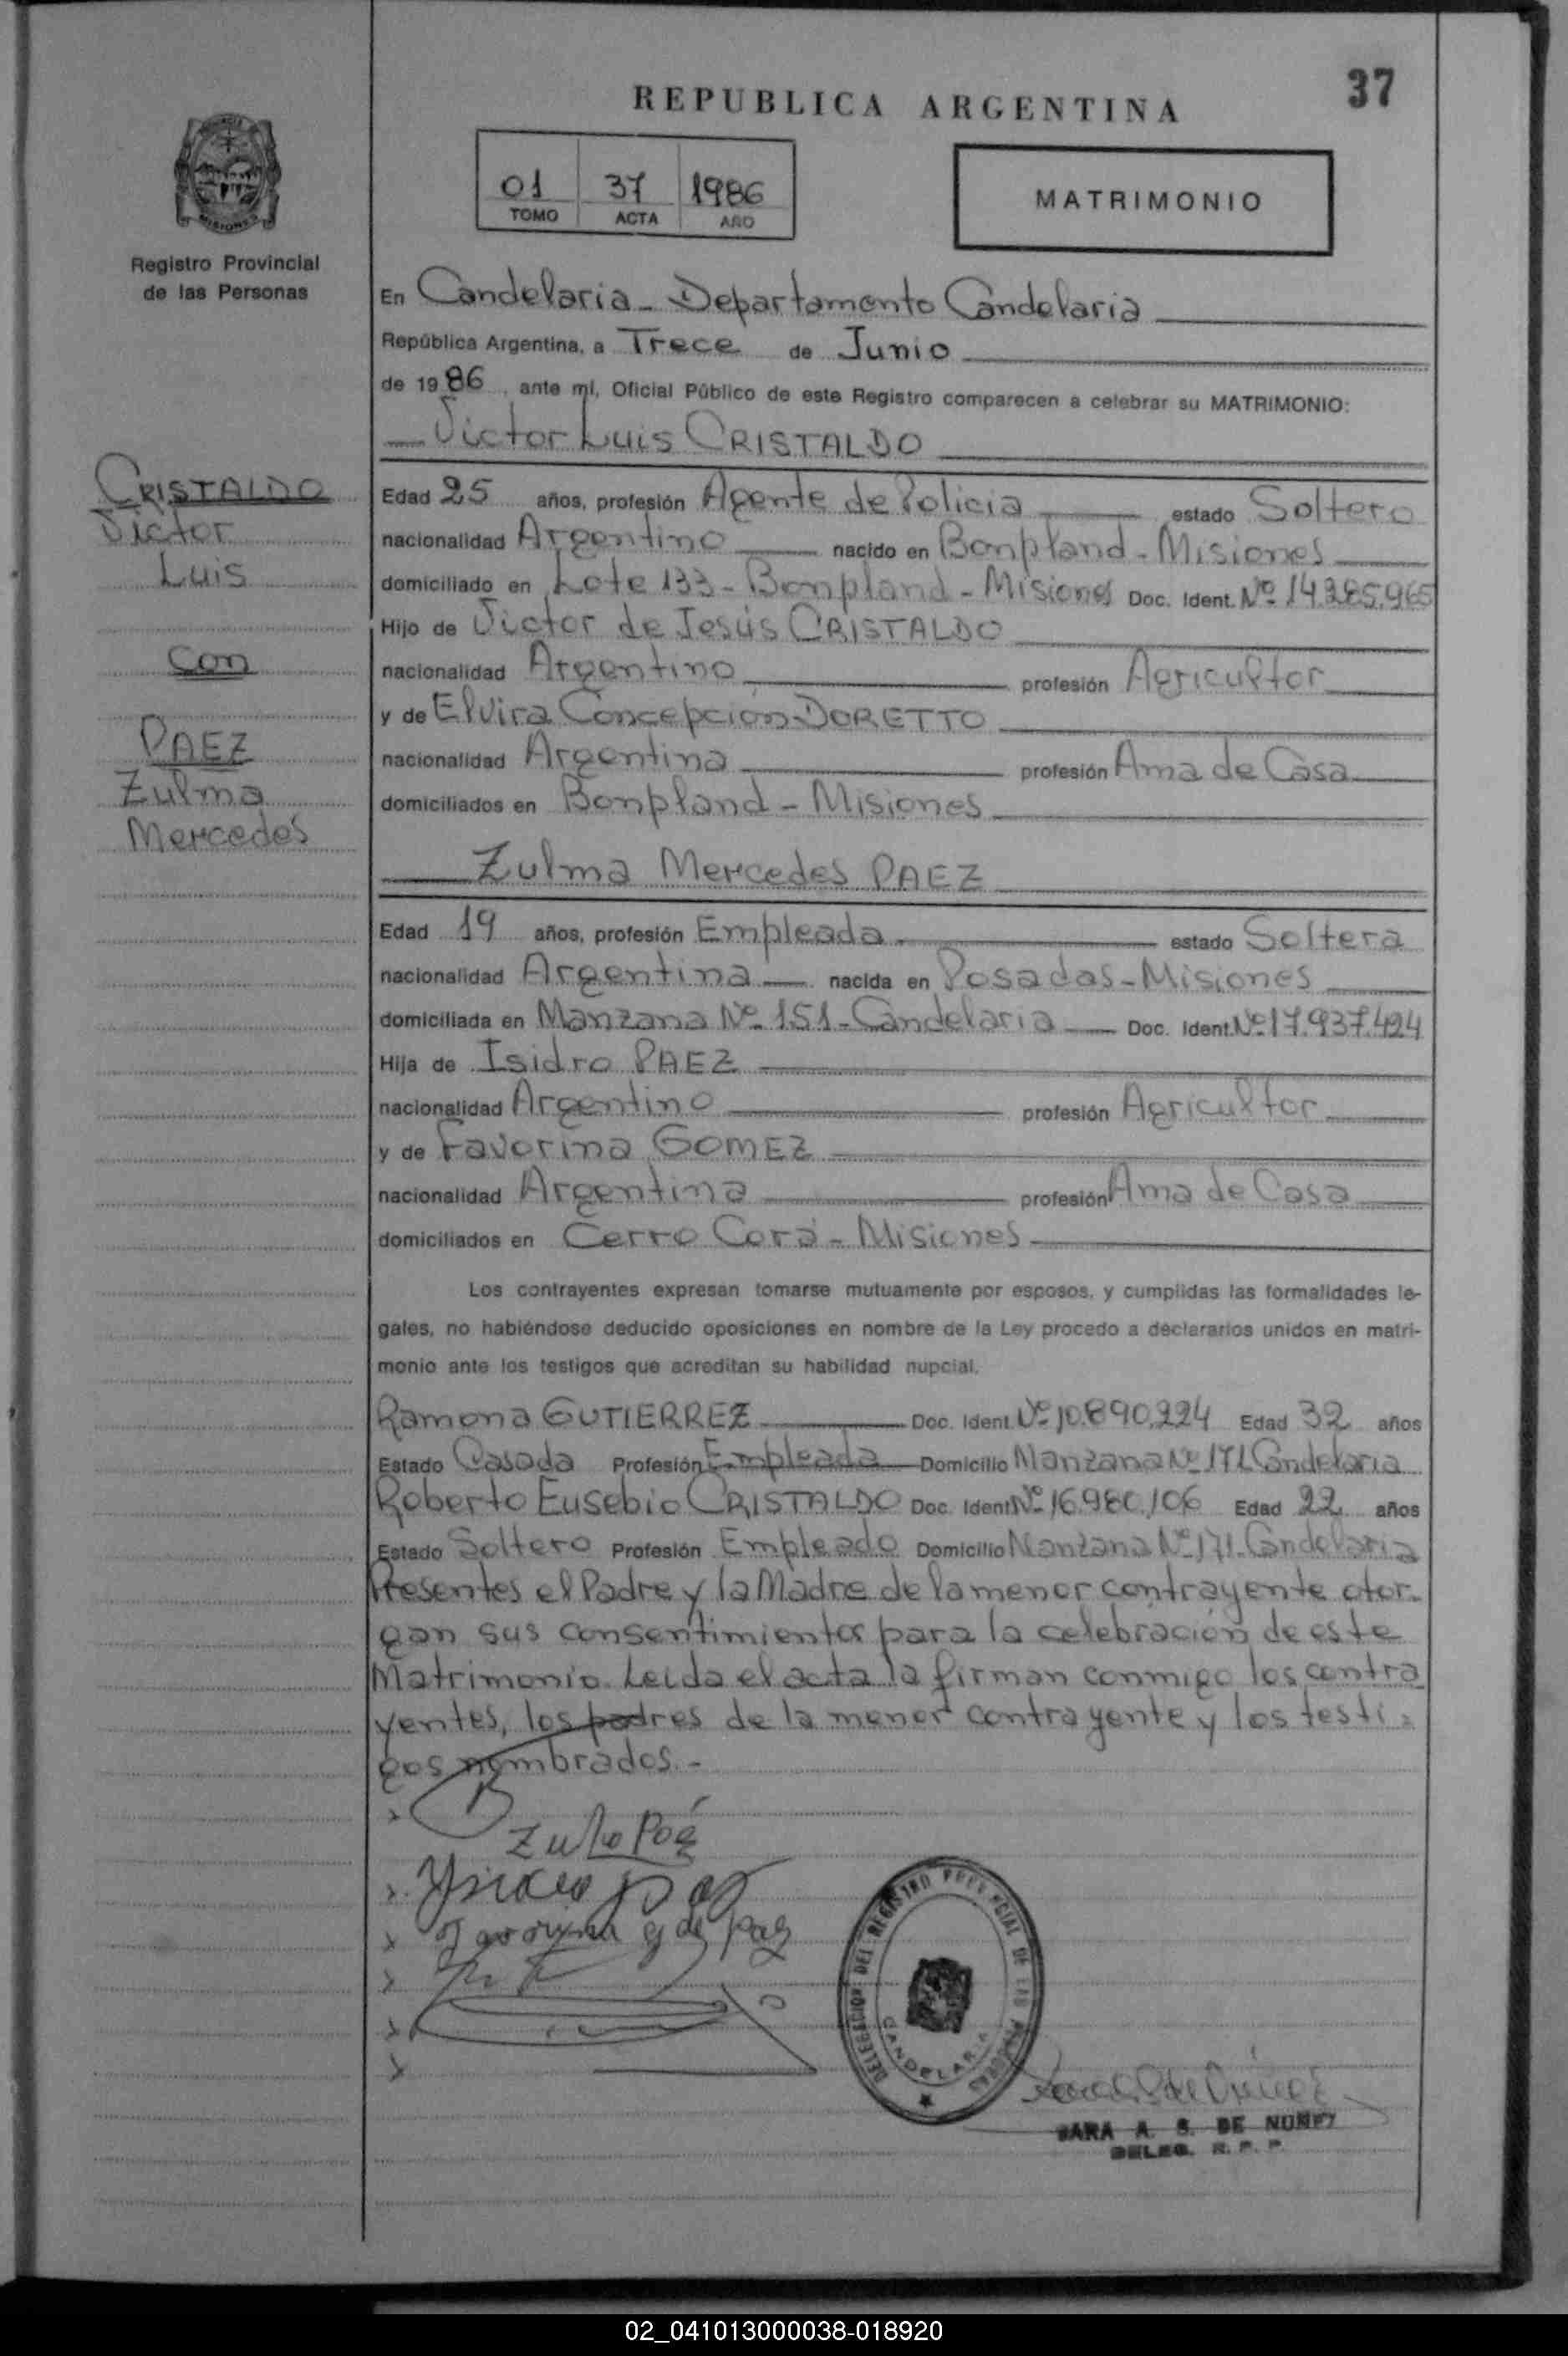 37
REPUBLICA ARGENTINA
01 37 1986
TOMO ACTA AÑO
MATRIMONIO
MISIONES
Registro Provincial
de las Personas
En Candelaria - Departamento Candelaria
República Argentina, a Trece de Junio
de 1986, ante mí, Oficial Público de este Registro comparecen a celebrar su MATRIMONIO:
Victor Luis CRISTALDO
CRISTALDO
Victor
Luis
con
PAEZ
Zulma
Mercedes
Edad 25 años, profesión Agente de Policia estado Soltero
nacionalidad Argentino nacido en Bonpland - Misiones
domiciliado en Lote 133 - Bonpland - Misiones Doc. Ident. Nº 14.285.965
Hijo de Victor de Jesús CRISTALDO
nacionalidad Argentino profesión Agricultor
y de Elvira Concepción DORETTO
nacionalidad Argentina profesión Ama de Casa
domiciliados en Bonpland - Misiones
Zulma Mercedes PAEZ
Edad 19 años, profesión Empleada estado Soltera
nacionalidad Argentina nacida en Posadas - Misiones
domiciliada en Manzana Nº 151 - Candelaria Doc. Ident. Nº 17.937.424
Hija de Isidro PAEZ
nacionalidad Argentino profesión Agricultor
y de Favorina GOMEZ
nacionalidad Argentina profesión Ama de Casa
domiciliados en Cerro Corá - Misiones
Los contrayentes expresan tomarse mutuamente por esposos, y cumplidas las formalidades le-
gales, no habiéndose deducido oposiciones en nombre de la Ley procedo a declararlos unidos en matri-
monio ante los testigos que acreditan su habilidad nupcial.
Ramona GUTIERREZ Doc. Ident. Nº 10.890.224 Edad 32 años
Estado Casada Profesión Empleada Domicilio Manzana Nº 171 Candelaria
Roberto Eusebio CRISTALDO Doc. Ident. Nº 16.980.106 Edad 22 años
Estado Soltero Profesión Empleado Domicilio Manzana Nº 171 - Candelaria
Presentes el Padre y la Madre de la menor contrayente otor-
gan sus consentimientos para la celebración de este
Matrimonio. Leida el acta la firman conmigo los contra
yentes, los padres de la menor contrayente y los testi-
gos nombrados.-
DELEGACION DEL REGISTRO PROVINCIAL DE LAS PERSONAS
CANDELARIA
SARA A. S. DE NUÑEZ
DELEG. R. P. P.
02_041013000038-018920